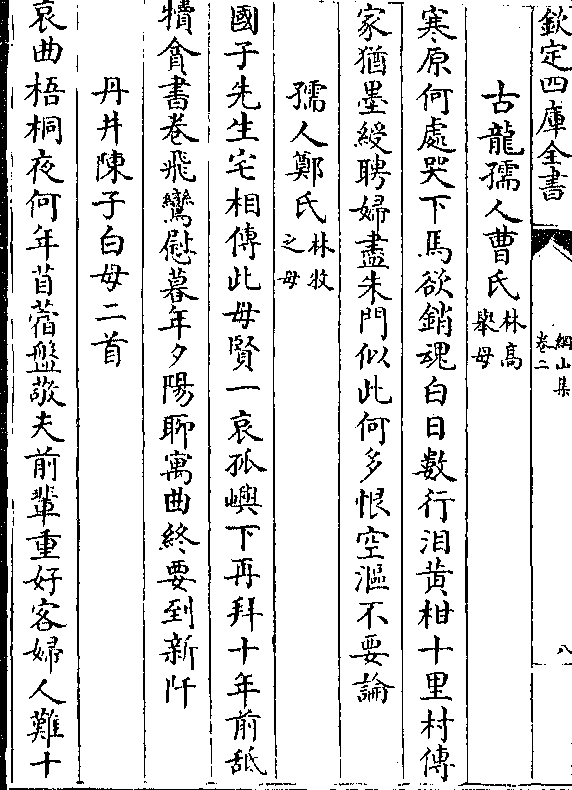 欽定四庫全書
綱山集
卷二
八
古龍孺人曹氏林高舉母
寒原何處哭下馬欲銷魂白日數行泪黄柑十里村傳
家猶墨綬聘婦盡朱門似此何多恨空漚不要論
孺人鄭氏林牧之母
國子先生宅相傳此母賢一哀孤嶼下再拜十年前舐
犢貪書卷飛鸞慰暮年夕陽聊寓曲終要到新阡
丹井陳子白母二首
哀曲梧桐夜何年苜蓿盤敬夫前輩重好客婦人難十